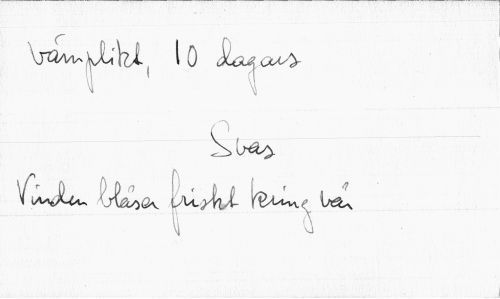 värnplikt, 10 dagars
Svas
Vinden blåser friskt kring vår